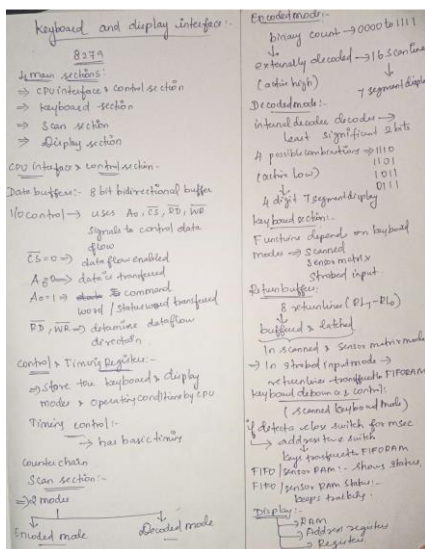 Keyboard and display interface:-
8279
4 main sections:
⇒ CPU interface & control section
⇒ keyboard section
⇒ Scan section
⇒ Display section
CPU interface & control section:-
Data buffers:- 8 bit bidirectional buffer
I/O control → uses A0, CS, RD, WR
signals to control data
flow
CS=0 → data flow enabled
A0=0 → data is transferred
A0=1 → command
word / status word transfered
RD, WR → determine data flow
direction.
Control & Timing Register:-
⇒ store the keyboard & display
modes & operating conditions by CPU
Timing control:-
→ has basic timing
Counter chain
Scan section:-
⇒ 2 modes
Encoded mode
Decoded mode
Encoded mode:-
binary count → 0000 to 1111
externally decoded → 16 scan lines
(active high)
7 segment display
Decoded mode:-
internal decoder decodes →
least significant 2 bits
4 possible combinations → 1110
1101
(active low) 1011
0111
4 digit 7 segment display
keyboard section:-
Functions depend on keyboard
modes → Scanned
Sensor matrix
Strobed input
Return buffers:-
8 return lines (RL7-RL0)
buffered & latched
→ In scanned & sensor matrix mode
→ In strobed input mode →
return lines FIFO RAM
keyboard debounce & control:
(scanned keyboard mode)
if detects close switch for msec
address the switch
keys FIFO RAM
FIFO/sensor RAM:- shows status.
FIFO/sensor RAM status:-
keeps
Display:-
→ RAM
→ Address registers
→ Registers.